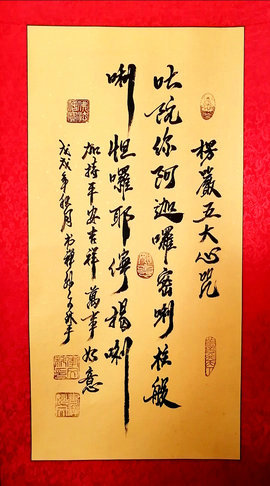 楞嚴五大心咒
叱陀你阿迦囉密唎柱般
唎怛囉耶儜揭唎
加持平安吉祥萬事如意
戊戌年月